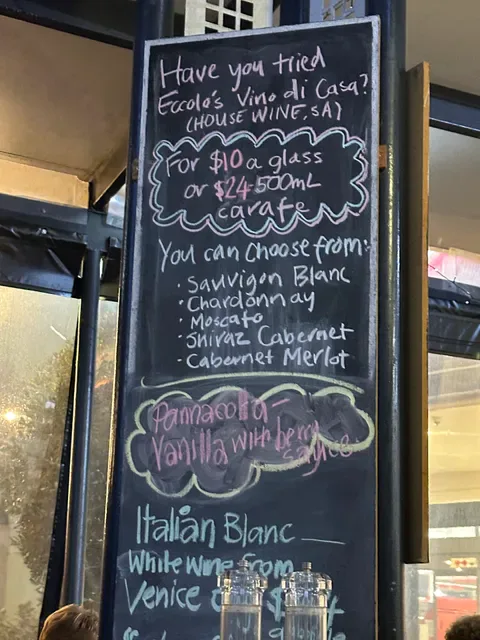 Have you tried
Eccolo's Vino di Casa?
(HOUSE WINE, SA)
For $10 a glass
or $24 500mL
carafe
You can choose from:
· Sauvigon Blanc
· Chardonnay
· Moscato
· Shiraz Cabernet
· Cabernet Merlot
Pannacotta -
Vanilla with berry
sauce
Italian Blanc
White wine from
Venice